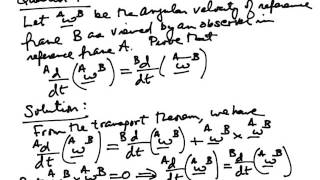 Let ᴬω̲ᴮ be the angular velocity of reference
frame B as viewed by an observer in
reference frame A. Prove that
ᴬd/dt (ᴬω̲ᴮ) = ᴮd/dt (ᴬω̲ᴮ)
Solution:
From the transport theorem, we have
ᴬd/dt (ᴬω̲ᴮ) = ᴮd/dt (ᴬω̲ᴮ) + ᴬω̲ᴮ × ᴬω̲ᴮ
ᴬω̲ᴮ × ᴬω̲ᴮ = 0 ⇒ ᴬd/dt (ᴬω̲ᴮ) = ᴮd/dt (ᴬω̲ᴮ)